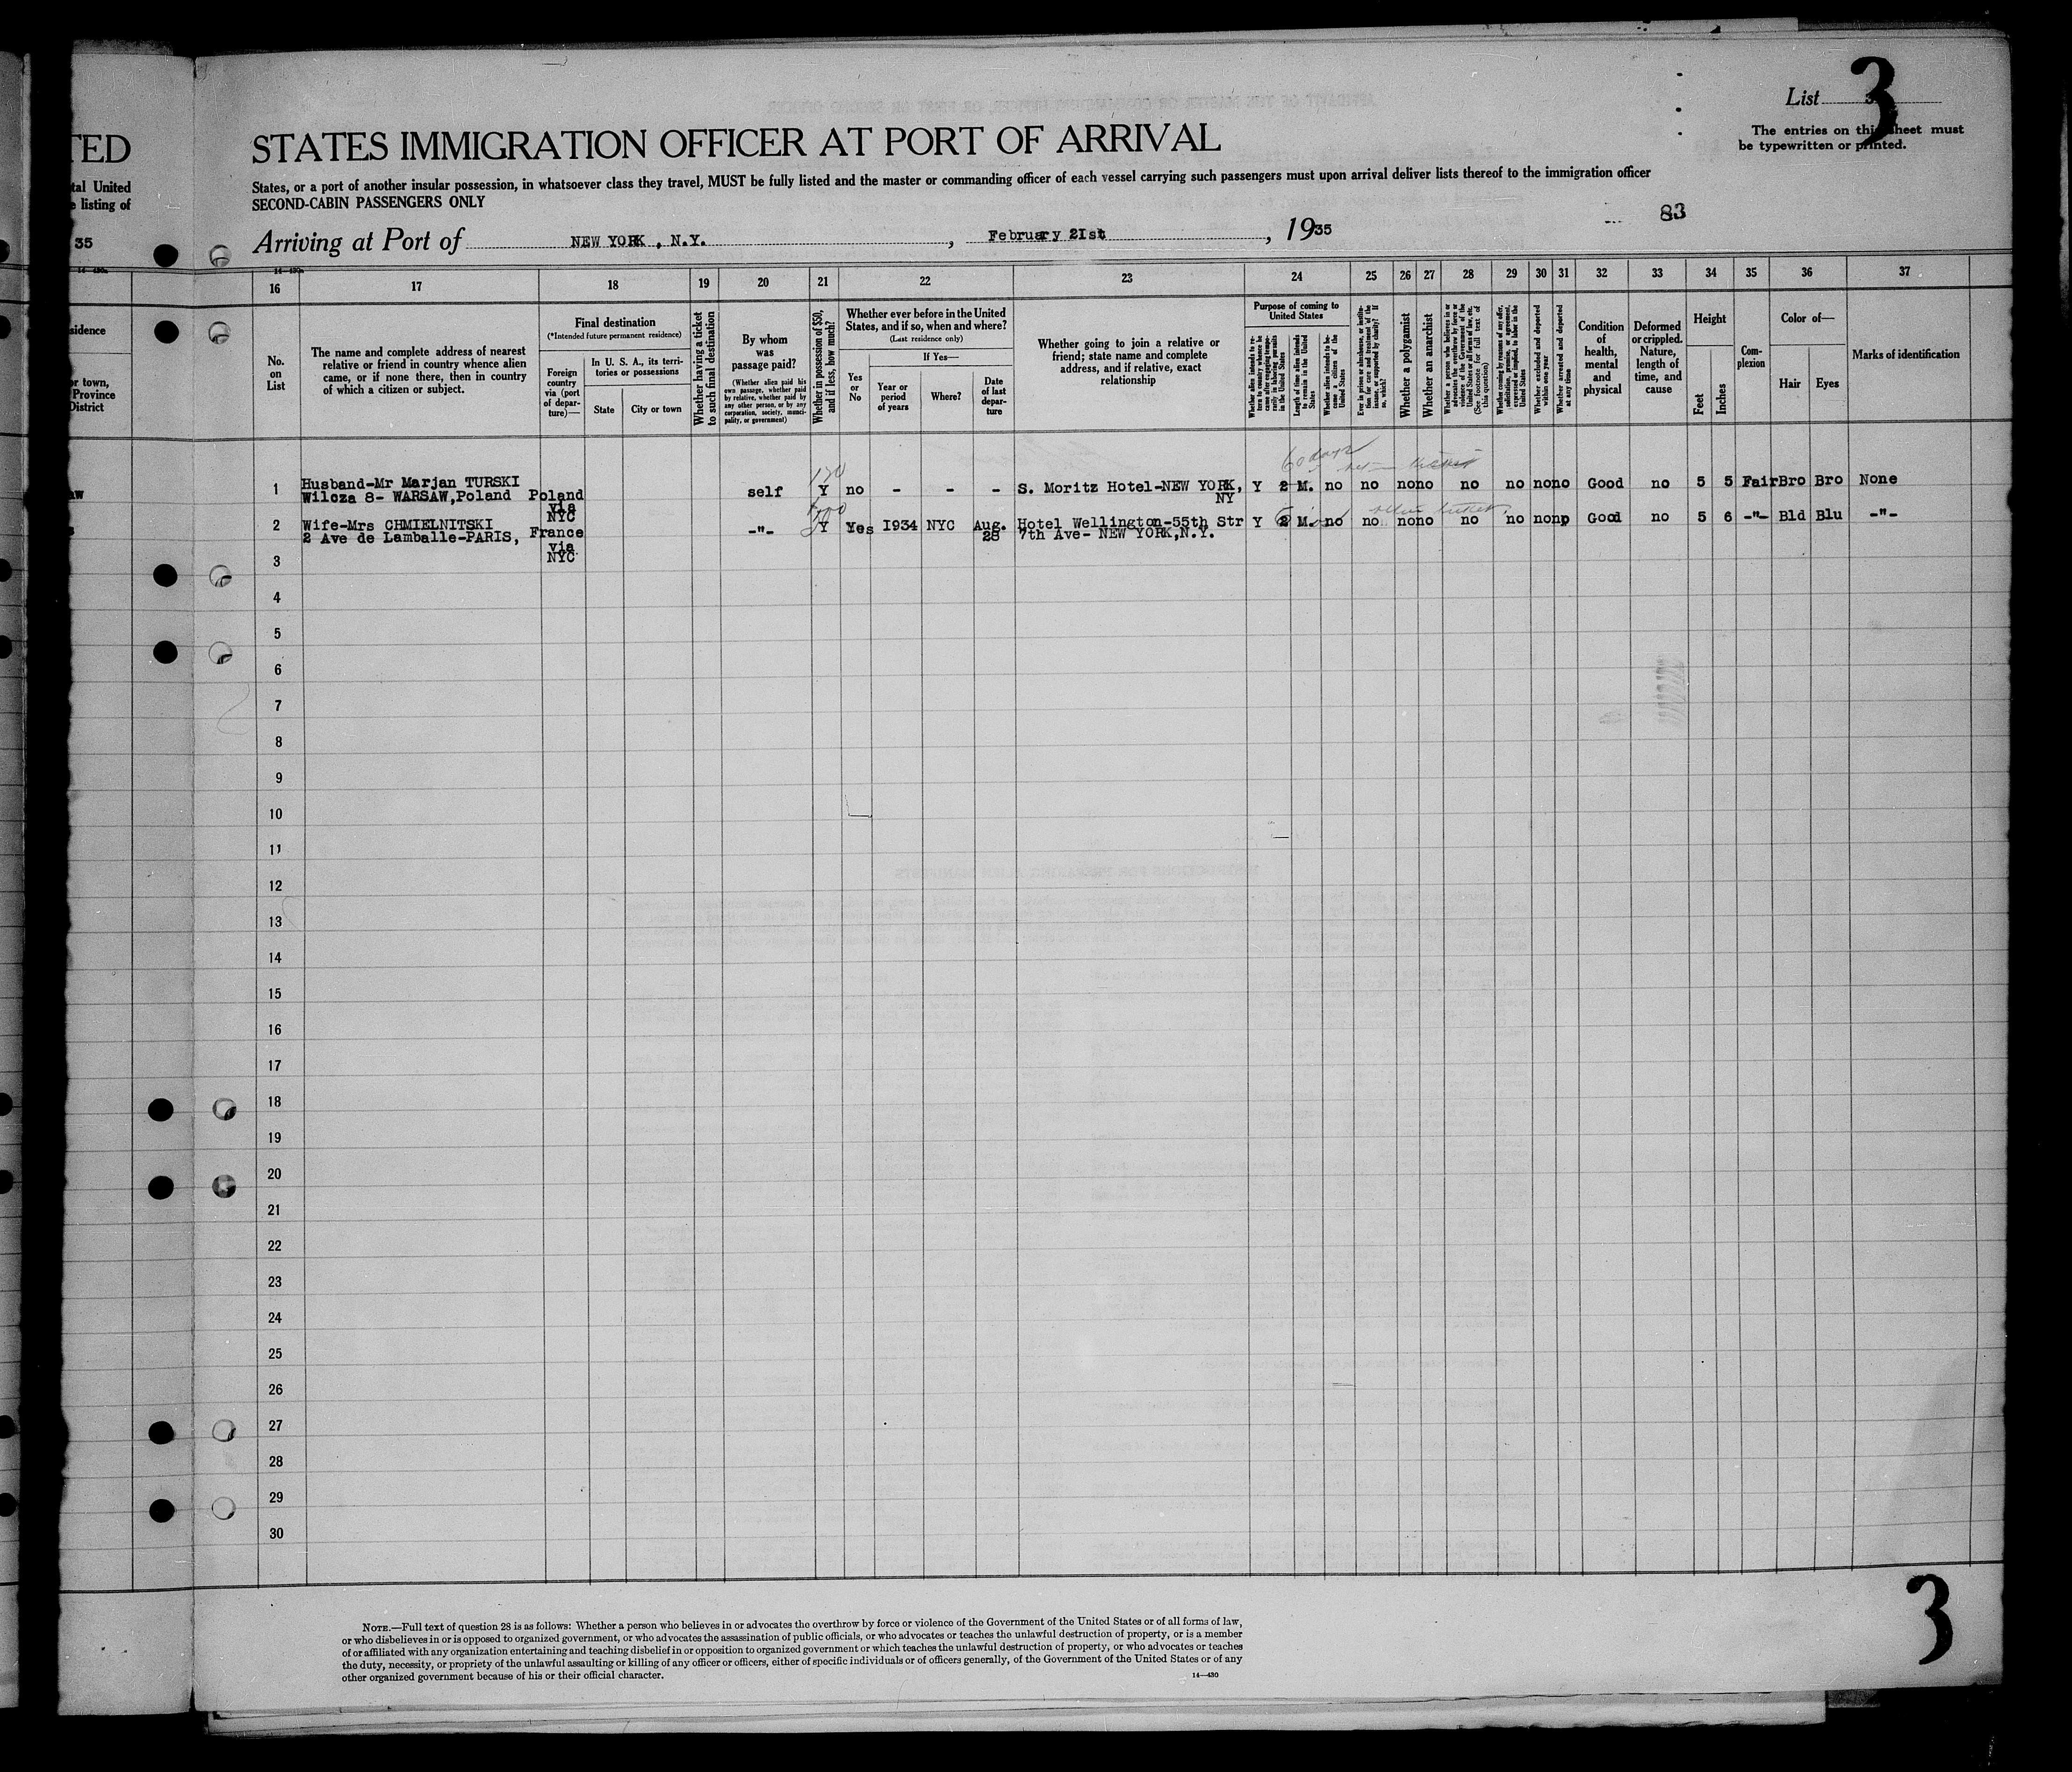 TED
tal United
e listing of
35
sidence
or town,
Province
District
aw
s
List 3
3
The entries on this sheet must
be typewritten or printed.
STATES IMMIGRATION OFFICER AT PORT OF ARRIVAL
States, or a port of another insular possession, in whatsoever class they travel, MUST be fully listed and the master or commanding officer of each vessel carrying such passengers must upon arrival deliver lists thereof to the immigration officer
SECOND-CABIN PASSENGERS ONLY
83
Arriving at Port of NEW YORK , N.Y. , February 2Ist , 1935
16 17 18 19 20 21 22 23 24 25 26 27 28 29 30 31 32 33 34 35 36 37
No. on List
The name and complete address of nearest relative or friend in country whence alien came, or if none there, then in country of which a citizen or subject.
Final destination
(*Intended future permanent residence)
Foreign country via (port of departure)—
In U. S. A., its territories or possessions
State
City or town
Whether having a ticket to such final destination
By whom was passage paid?
(Whether alien paid his own passage, whether paid by relative, whether paid by any other person, or by any corporation, society, municipality, or government)
Whether in possession of $50, and if less, how much?
Whether ever before in the United States, and if so, when and where?
(Last residence only)
Yes or No
If Yes—
Year or period of years
Where?
Date of last departure
Whether going to join a relative or friend; state name and complete address, and if relative, exact relationship
Purpose of coming to United States
Whether alien intends to return to country whence he came after engaging temporarily in laboring pursuits in the United States
Length of time alien intends to remain in the United States
Whether alien intends to become a citizen of the United States
Ever in prison or almshouse, or institution for care and treatment of the insane, or supported by charity? If so, which?
Whether a polygamist
Whether an anarchist
Whether a person who believes in or advocates the overthrow by force or violence of the Government of the United States or all forms of law, etc. (See footnote for full text of this question)
Whether coming by reason of any offer, solicitation, promise, or agreement, expressed or implied, to labor in the United States
Whether excluded and deported within one year
Whether arrested and deported at any time
Condition of health, mental and physical
Deformed or crippled. Nature, length of time, and cause
Height
Feet
Inches
Complexion
Color of—
Hair
Eyes
Marks of identification
60 days
170
1 Husband-Mr Marjan TURSKI self Y no - - - S. Moritz Hotel-NEW YORK, Y 2 M. no no no no no no no no Good no 5 5 Fair Bro Bro None
Wilcza 8- WARSAW,Poland Poland NY
via
NYC
2 Wife-Mrs CHMIELNITSKI -"- Y Yes I934 NYC Aug. Hotel Wellington-55th Str Y 2 M. no no no no no no no no Good no 5 6 -"- Bld Blu -"-
2 Ave de Lamballe-PARIS, France 28 7th Ave- NEW YORK,N.Y.
via
NYC
3
4
5
6
7
8
9
10
11
12
13
14
15
16
17
18
19
20
21
22
23
24
25
26
27
28
29
30
3
NOTE.—Full text of question 28 is as follows: Whether a person who believes in or advocates the overthrow by force or violence of the Government of the United States or of all forms of law,
or who disbelieves in or is opposed to organized government, or who advocates the assassination of public officials, or who advocates or teaches the unlawful destruction of property, or is a member
of or affiliated with any organization entertaining and teaching disbelief in or opposition to organized government or which teaches the unlawful destruction of property, or who advocates or teaches
the duty, necessity, or propriety of the unlawful assaulting or killing of any officer or officers, either of specific individuals or of officers generally, of the Government of the United States or of any
other organized government because of his or their official character.
14—430